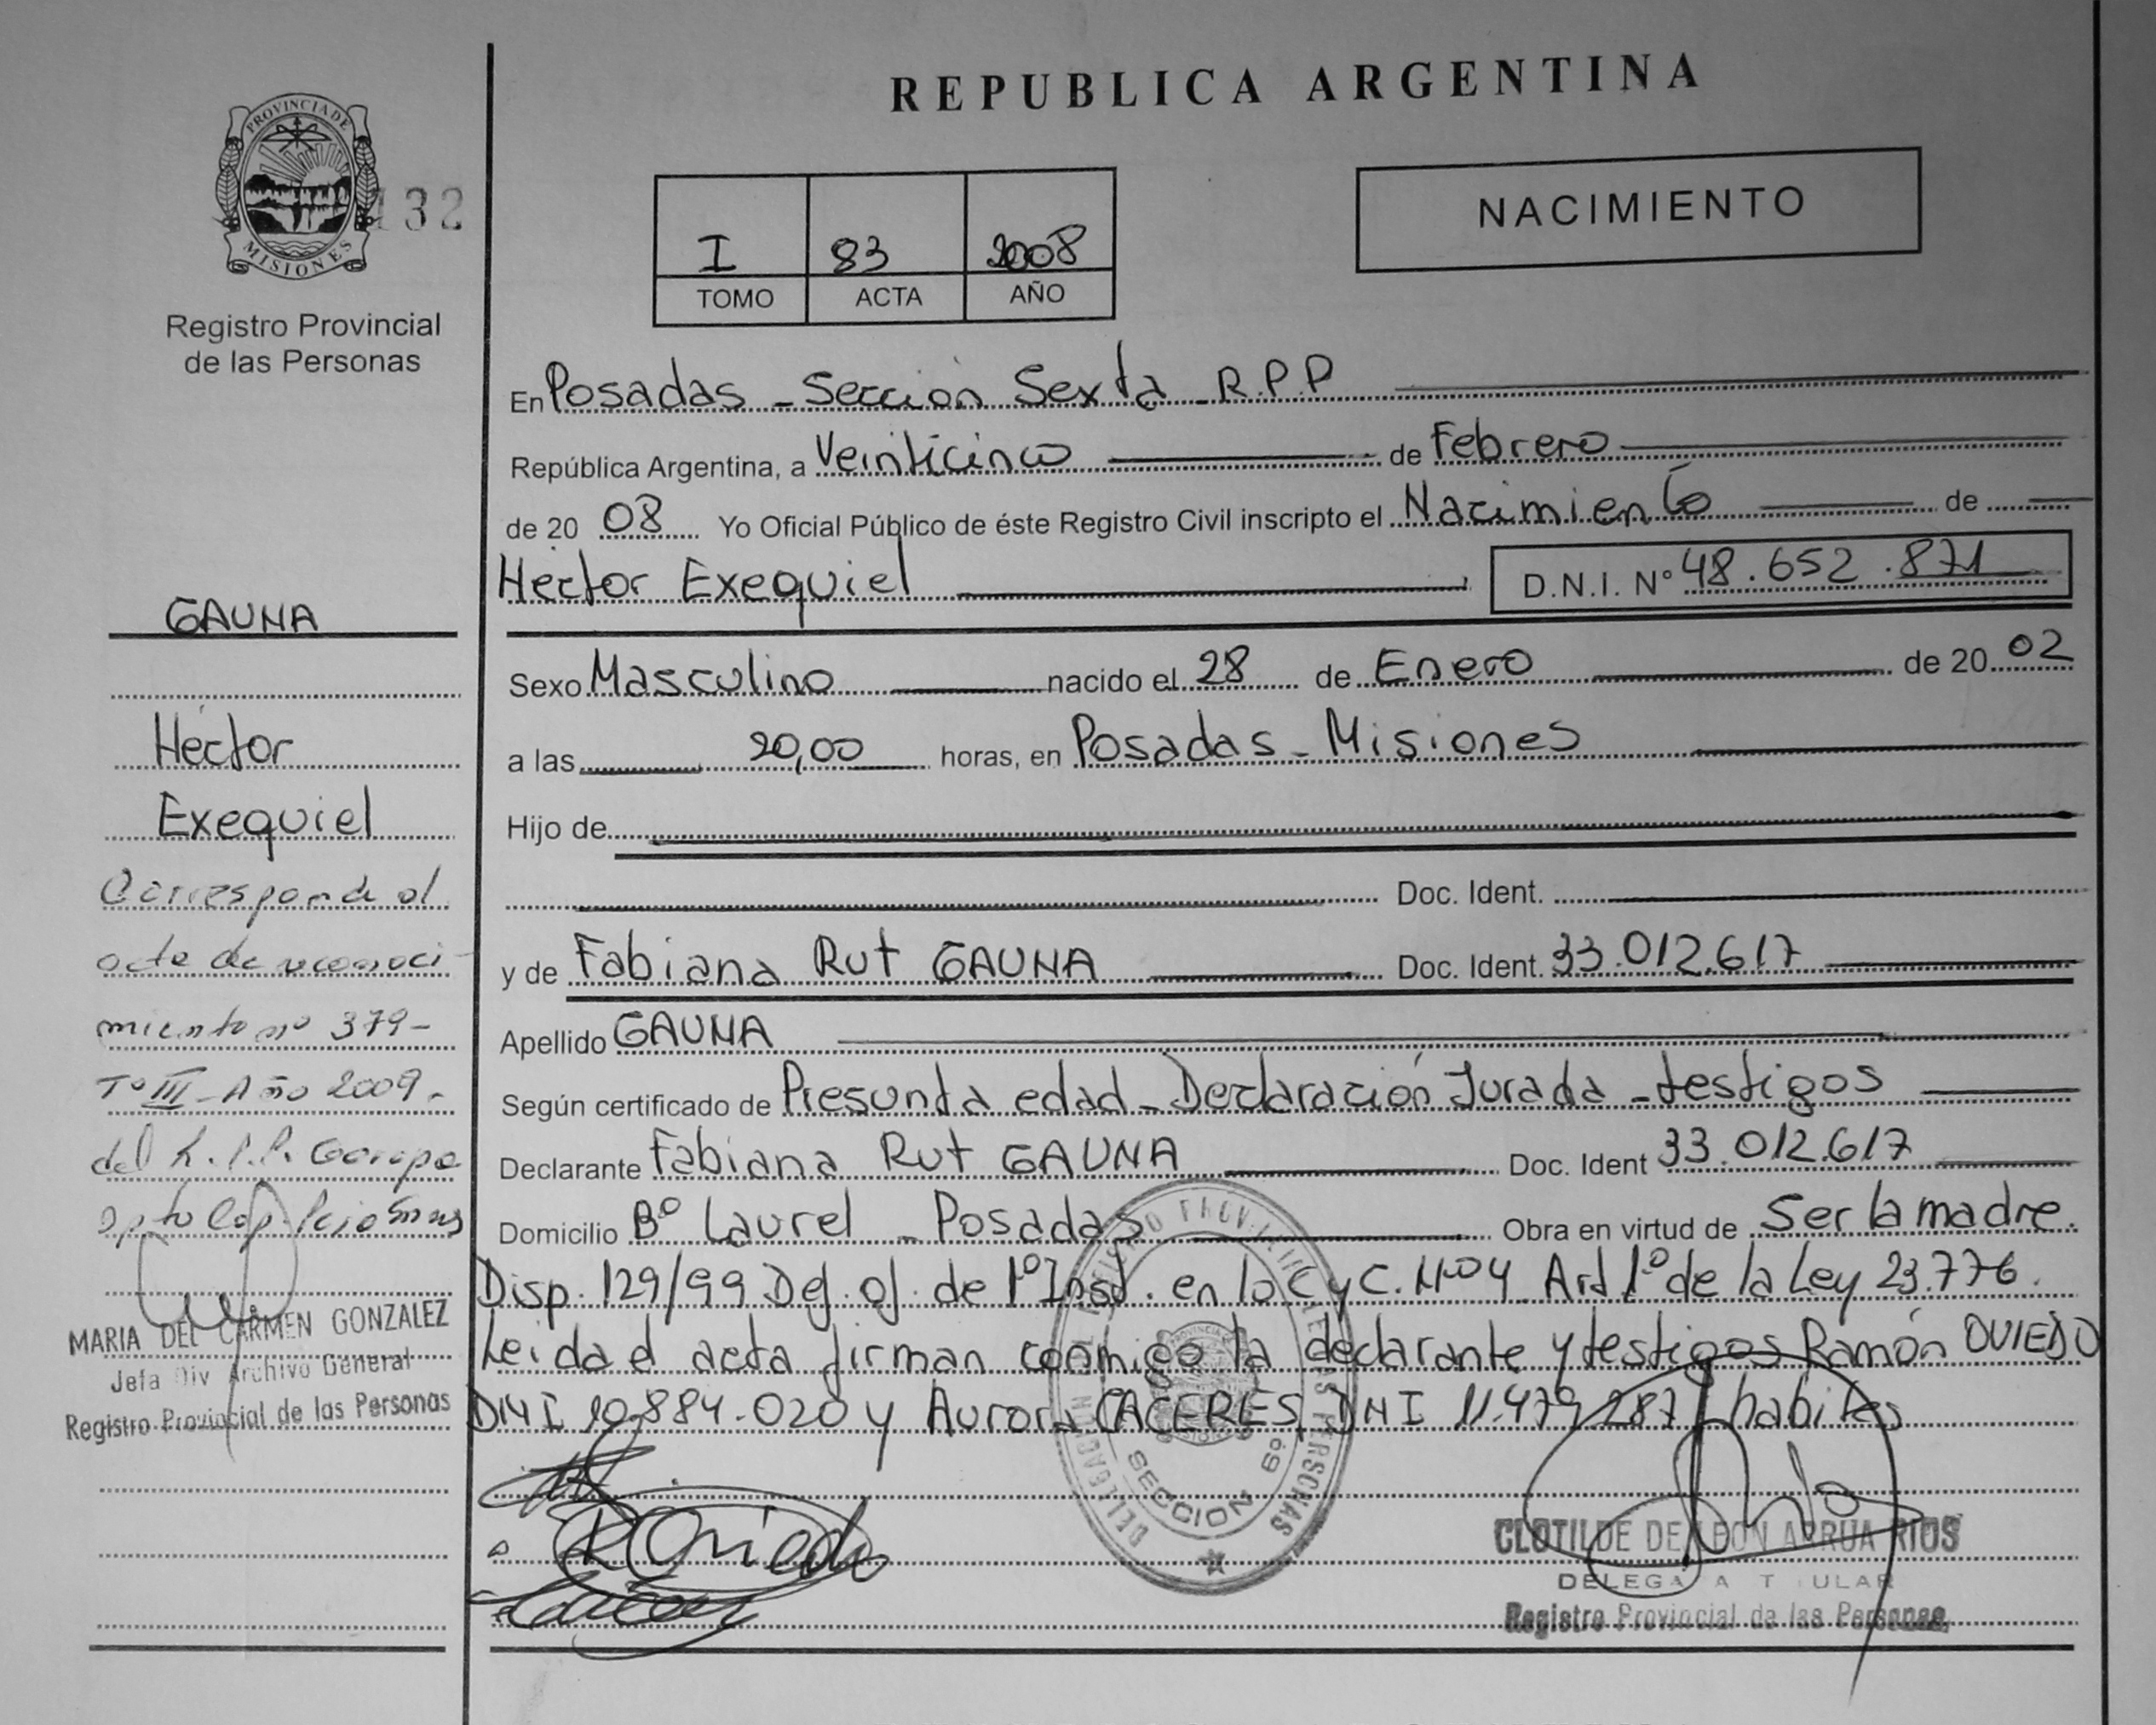 REPUBLICA ARGENTINA
PROVINCIA DE
MISIONES
132
Registro Provincial
de las Personas
I 83 2008
TOMO ACTA AÑO
NACIMIENTO
En Posadas - Sección Sexta - R.P.P
República Argentina, a Veinticinco de Febrero
de 20 08 Yo Oficial Público de éste Registro Civil inscripto el Nacimiento de
Hector Exequiel D.N.I. Nº 48.652.871
Sexo Masculino nacido el 28 de Enero de 20 02
a las 20,00 horas, en Posadas - Misiones
Hijo de
Doc. Ident.
y de Fabiana Rut GAUNA Doc. Ident. 33.012.617
Apellido GAUNA
Según certificado de Presunta edad - Declaración Jurada - testigos
Declarante Fabiana Rut GAUNA Doc. Ident 33.012.617
Domicilio Bº Laurel - Posadas Obra en virtud de Ser la madre
Disp. 129/99 Def. of. de 1º Inst. en lo C y C. Nº 04 Art 1º de la Ley 23.776.
Leida el acta firman conmigo la declarante y testigos Ramón OVIEDO
DNI 10.884.020 y Aurora CACERES, DNI 11.479.287 habiles
R Oviedo
SECCION 6º
CLOTILDE DE LEON ARRUA RIOS
DELEGA A T ULAR
Registro Provincial de las Personas
GAUNA
Hector
Exequiel
Corresponde al
acta de reconoci-
miento nº 379-
Tº III - Año 2009.
del R.P.P.
MARIA DEL CARMEN GONZALEZ
Jefa Div Archivo General
Registro Provincial de las Personas